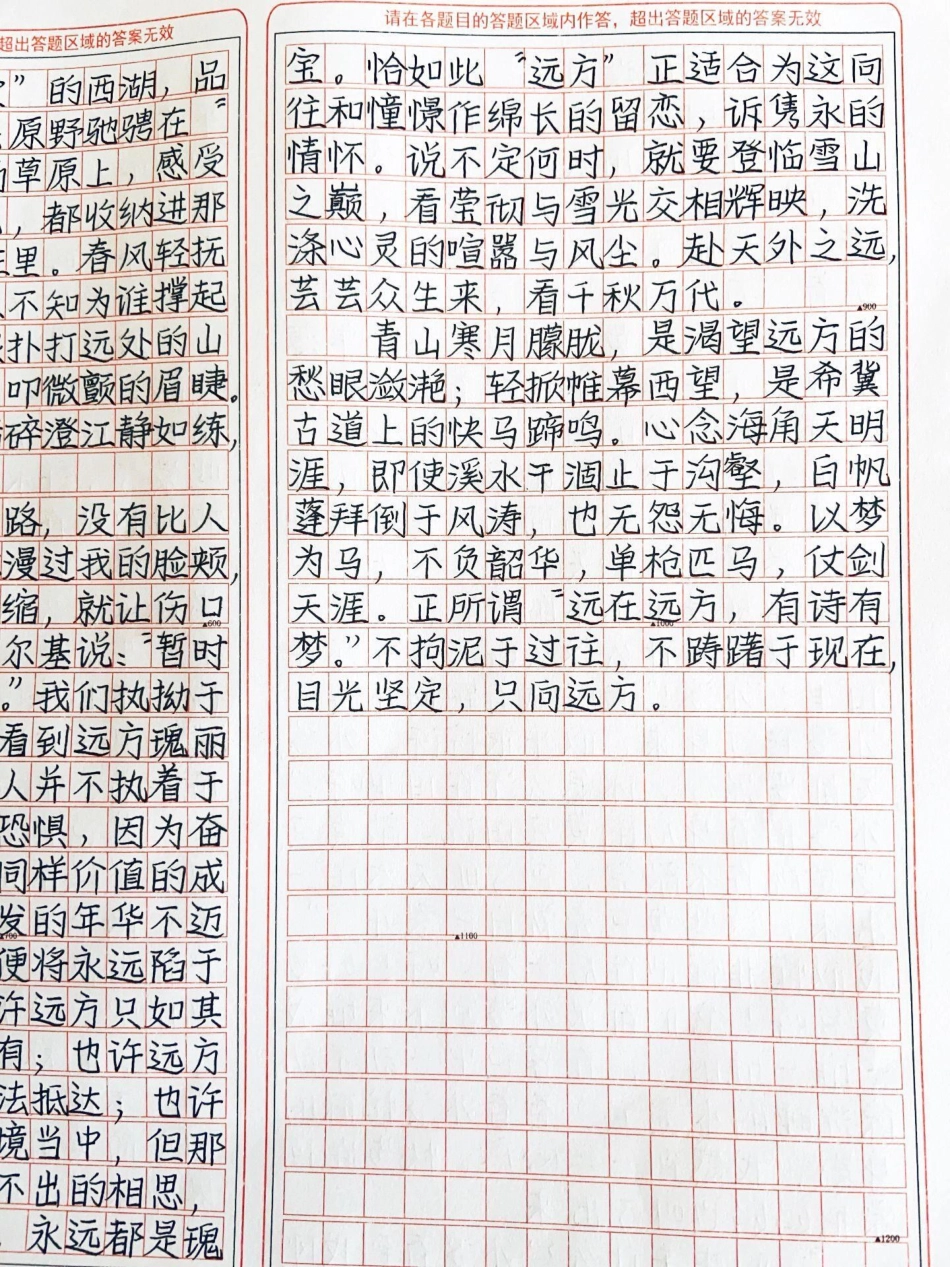 超出答题区域的答案无效
”的西湖，品
原野驰骋在“
草原上，感受
，都收纳进那
里。春风轻抚
不知为谁撑起
扑打远处的山
叩微颤的眉睫。
碎澄江静如练，
路，没有比人
漫过我的脸颊，
缩，就让伤口
▲600
尔基说：“暂时
。”我们执拗于
看到远方瑰丽
人并不执着于
恐惧，因为奋
同样价值的成
发的年华不迈
▲700
便将永远陷于
许远方只如其
有；也许远方
法抵达；也许
境当中，但那
不出的相思，
永远都是瑰
请在各题目的答题区域内作答，超出答题区域的答案无效
宝。恰如此“远方”正适合为这向
往和憧憬作绵长的留恋，诉隽永的
情怀。说不定何时，就要登临雪山
之巅，看莹彻与雪光交相辉映，洗
涤心灵的喧嚣与风尘。赴天外之远，
芸芸众生来，看千秋万代。
▲900
青山寒月朦胧，是渴望远方的
愁眼潋滟；轻掀帷幕西望，是希冀
古道上的快马蹄鸣。心念海角天明
涯，即使溪水干涸止于沟壑，白帆
蓬拜倒于风涛，也无怨无悔。以梦
为马，不负韶华，单枪匹马，仗剑
天涯。正所谓“远在远方，有诗有
▲1000
梦。”不拘泥于过往，不踌躇于现在，
目光坚定，只向远方。
▲1100
▲1200